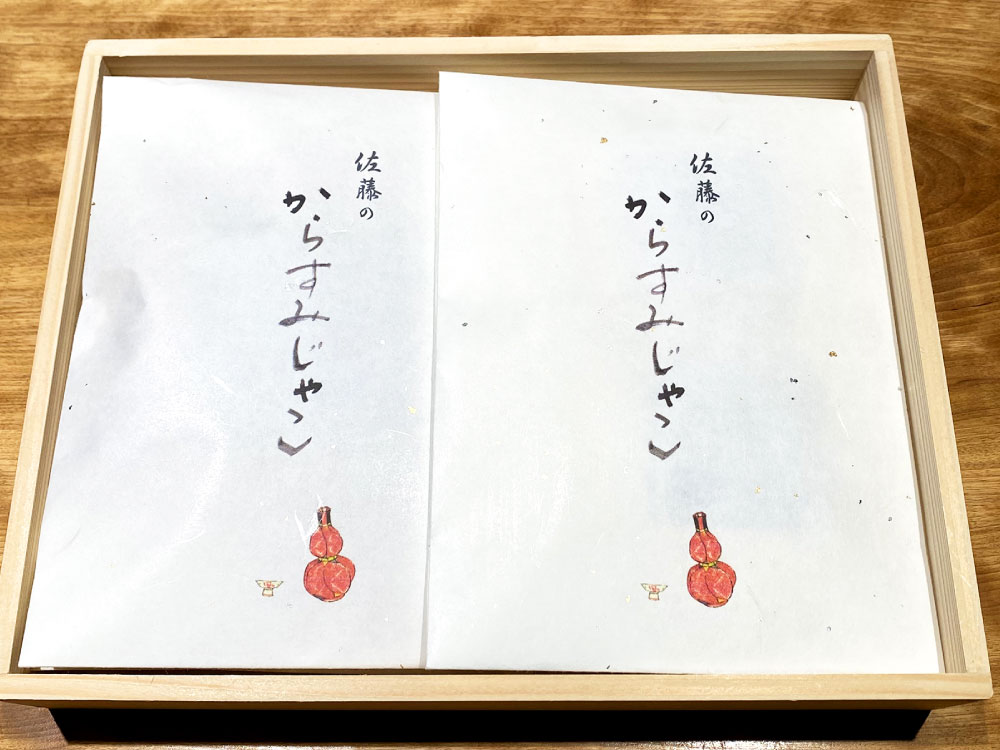 佐藤の
からすみじゃこ
佐藤の
からすみじゃこ